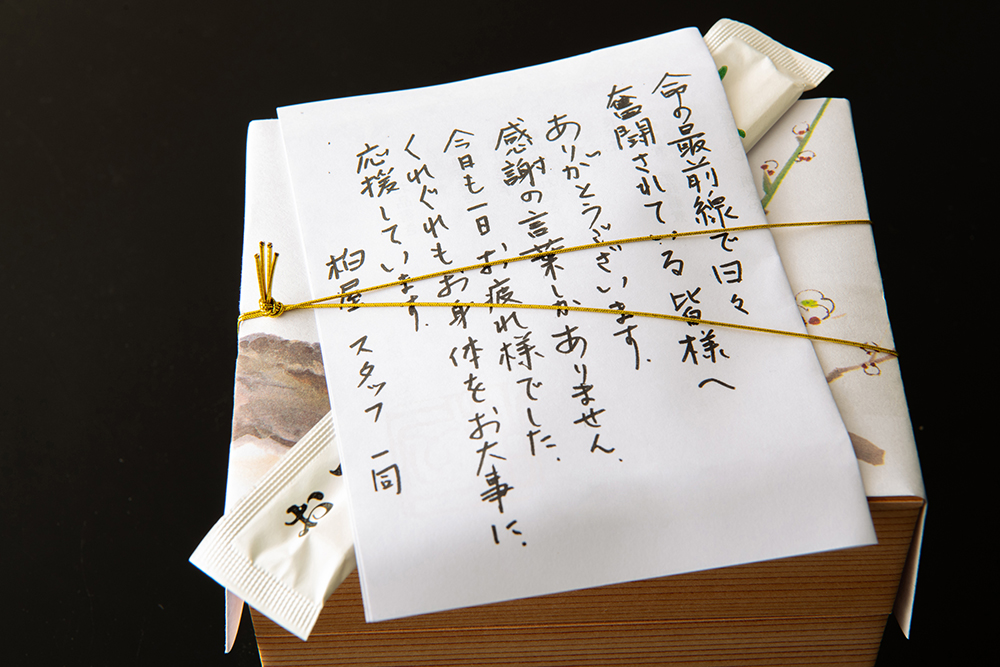 命の最前線で日々
奮闘されている皆様へ
ありがとうございます.
感謝の言葉しかありません.
今日も一日お疲れ様でした.
くれぐれもお身体をお大事に.
応援しています.
柏屋 スタッフ一同
お